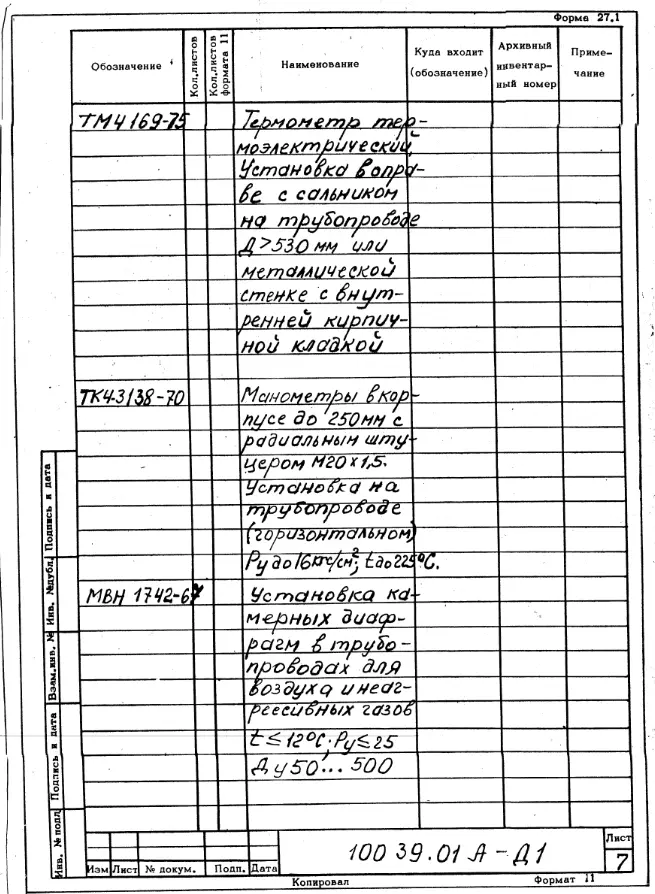 Форма 27.1
Обозначение
Кол.листов
Кол.листов формата 11
Наименование
Куда входит (обозначение)
Архивный инвентар-ный номер
Приме-чание
ТМ4169-75 Термометр тер-
моэлектрический.
Установка в опра-
ве с сальником
на трубопроводе
Д>530 мм или
металлической
стенке с внут-
ренней кирпич-
ной кладкой
ТК43138-70 Манометры в кор-
пусе до 250мм с
радиальным шту-
цером М20х1,5.
Установка на
трубопроводе
(горизонтальном)
Ру до 16кгс/см²; t до 225°С.
МВН 1742-67 Установка ка-
мерных диаф-
рагм в трубо-
проводах для
воздуха и неаг-
реесивных газов
t≤12°С; Ру≤25
Ду50...500
Инв. № подл.
Подпись и дата
Взам.инв. №
Инв. №дубл.
Подпись и дата
Изм Лист № докум. Подп. Дата
100 39.01 А-Д1
Лист
7
Копировал
Формат 11